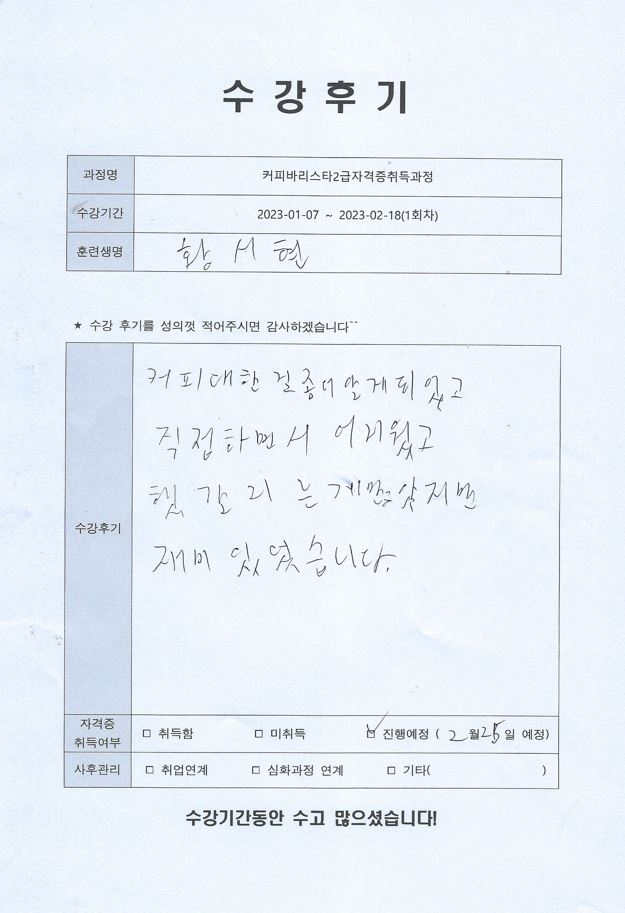 수강후기
과정명 커피바리스타2급자격증취득과정
수강기간 2023-01-07 ~ 2023-02-18(1회차)
훈련생명 황서현
★ 수강 후기를 성의껏 적어주시면 감사하겠습니다^^
수강후기
커피대한 걸 좀더 알게되었고
직접하면서 어려웠고
헷갈리는게 많았지만
재미있었습니다.
자격증 취득여부 □ 취득함 □ 미취득 ☑ 진행예정 ( 2월25일 예정)
사후관리 □ 취업연계 □ 심화과정 연계 □ 기타( )
수강기간동안 수고 많으셨습니다!